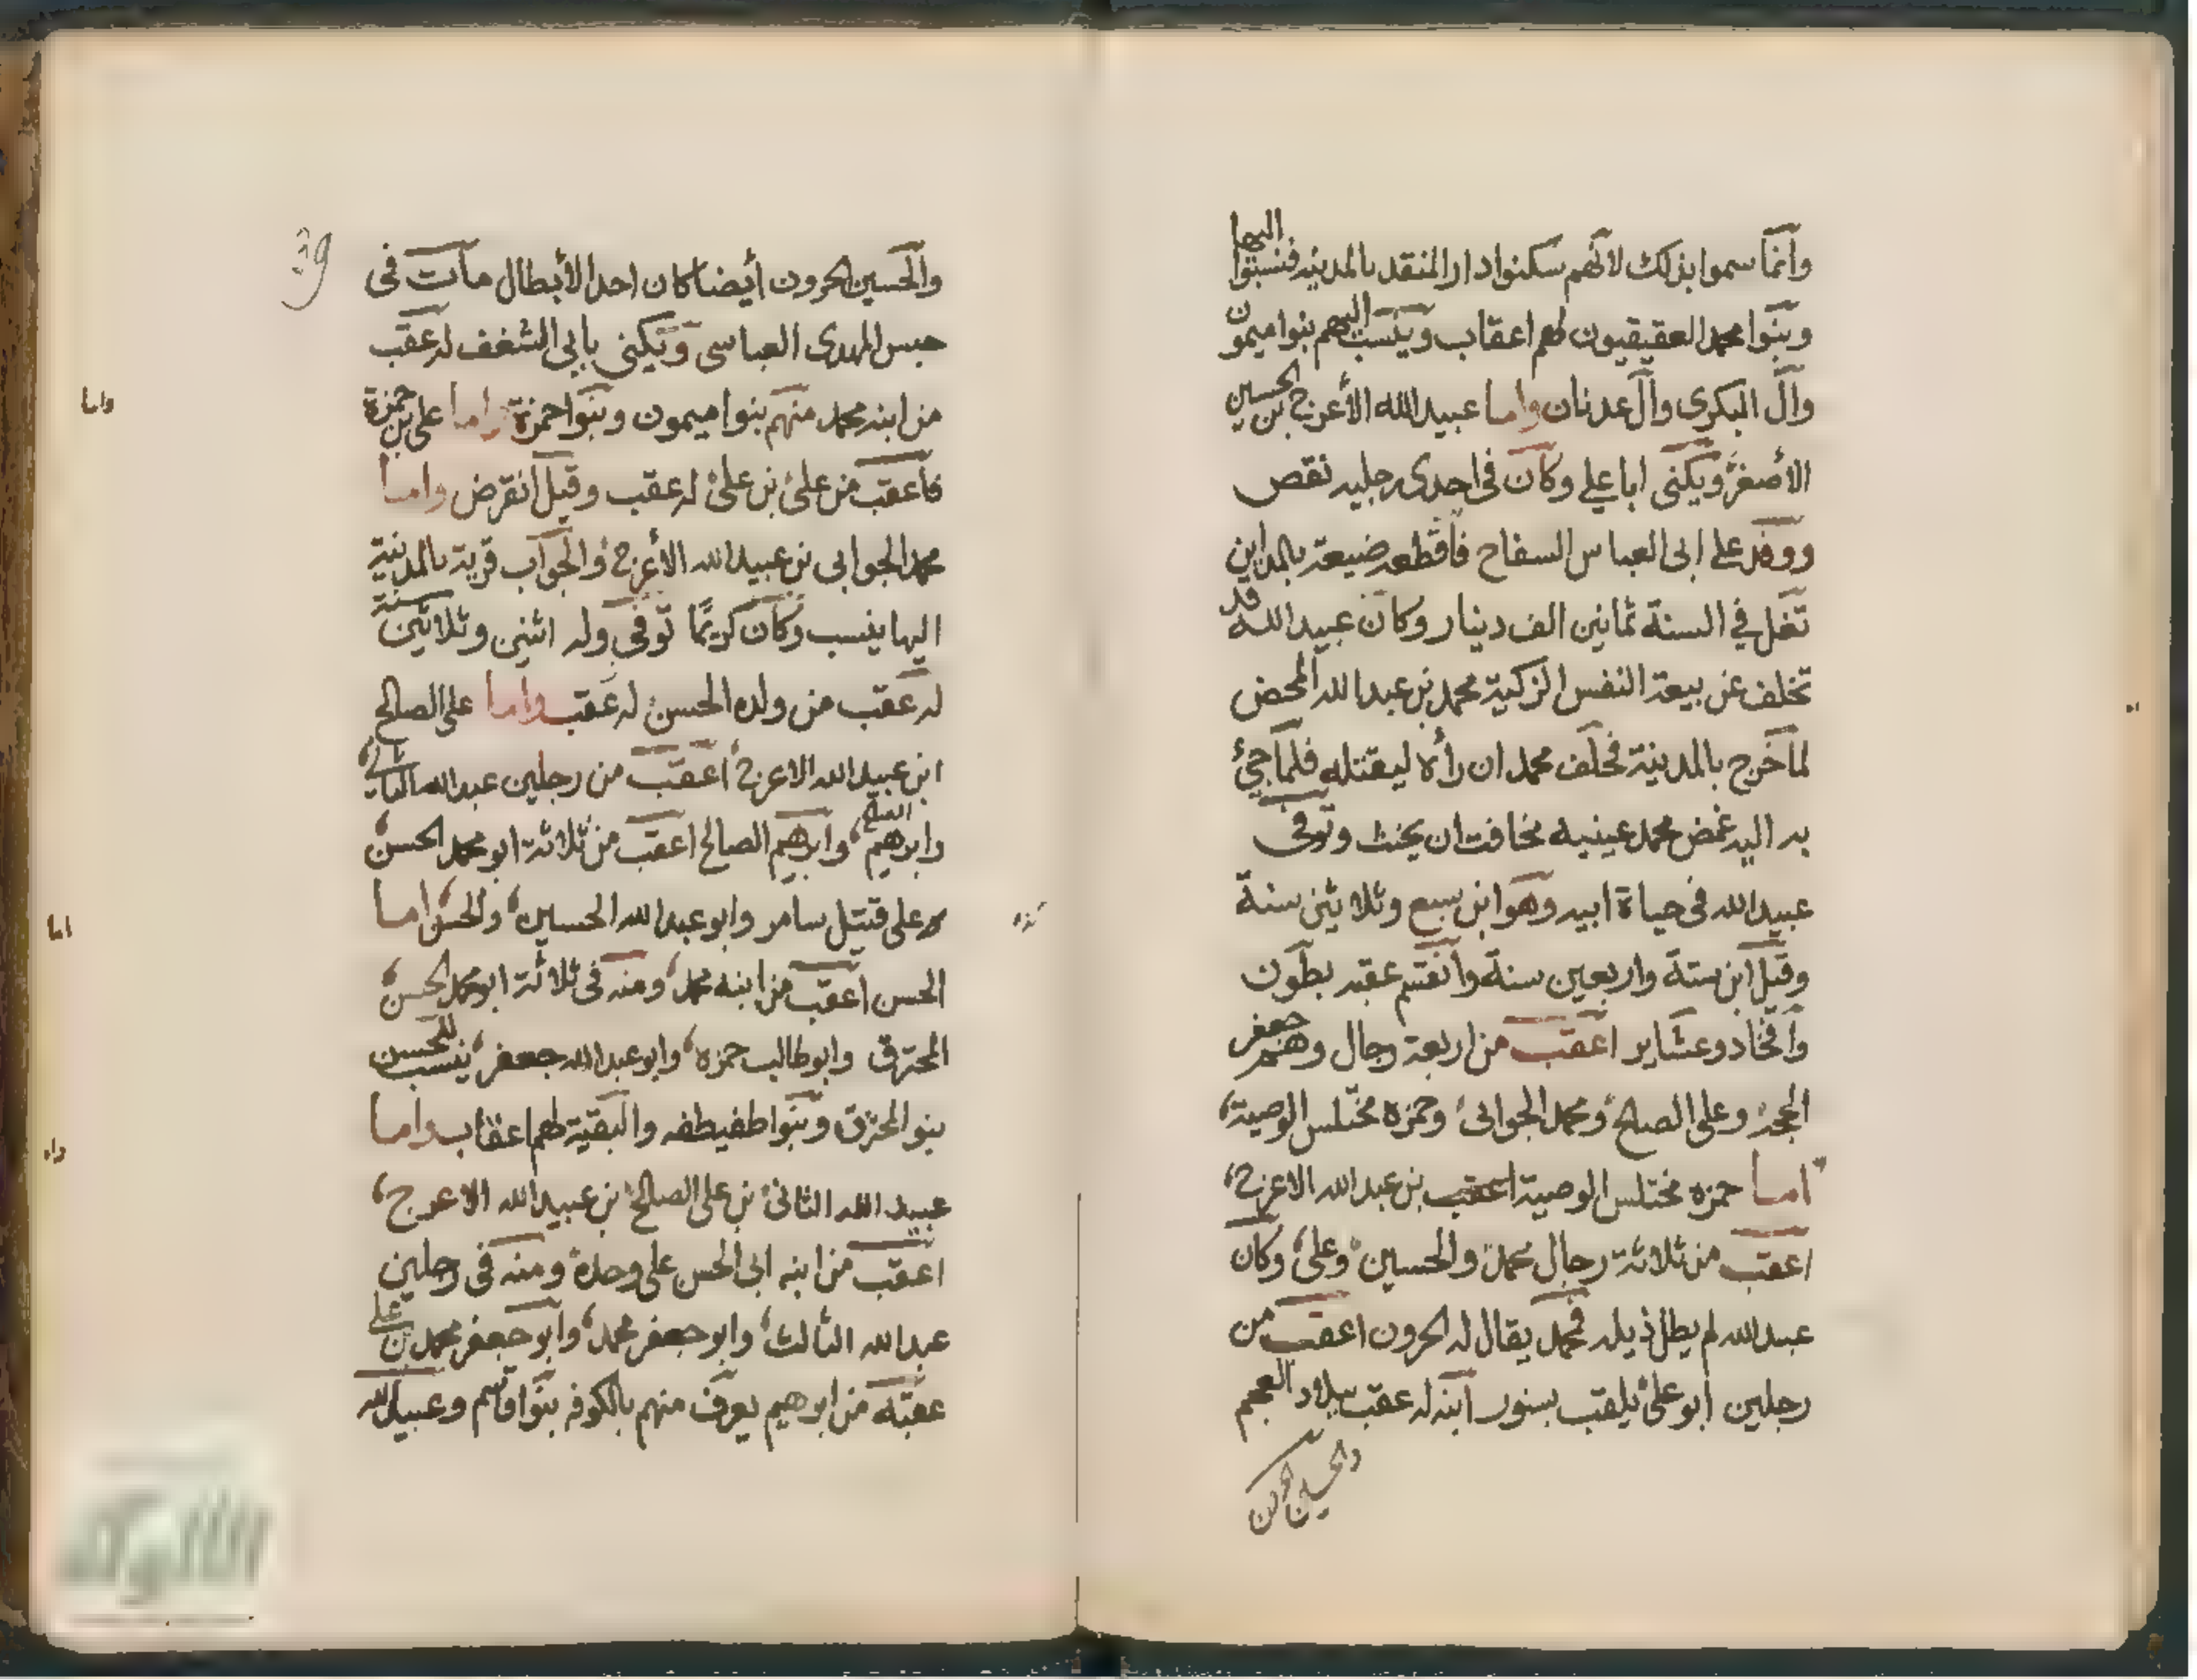 وانما سموا بذلك لانهم سكنوا دار المنقد بالمدينه فنسبوا اليها
وبنوا محمد العقيقيون لهم اعقاب وينسب اليهم بنوا ميمون
وآل البكرى وآل عدنان واما عبيدالله الأعرج بن الحسين
الأصغر ويكنى ابا علي وكان فى احدى رجليه نقص
ووفد على ابى العباس السفاح فاقطعه ضيعة بالمداين
تغل في السنة ثمانين الف دينار وكان عبيدالله قد
تخلف عن بيعة النفس الزكية محمد بن عبدالله المحض
لما خرج بالمدينة فحلف محمد ان رأه ليقتله فلما جئ
به اليه غمض محمد عينيه مخافت ان يحنث وتوفى
عبيدالله فى حياة ابيه وهو ابن سبع وثلاثين سنة
وقيل ابن ستة واربعين سنة وانقسم عقبه بطون
وافخاد وعشاير اعقب من اربعة رجال وهم جعفر
الحجه وعلى الصالح ومحمد الجوانى وحمزه مختلس الوصية
اما حمزه مختلس الوصية اعقب بن عبدالله الاعرج
اعقب من ثلاثة رجال محمد والحسين وعلى وكان
عبدالله لم يطل ذيله فمحمد يقال له الحرون اعقب من
رجلين ابو على يلقب بسنور ابنه له عقب ببلاد العجم
والحسين الحرون
39
والحسين الحرون أيضا كان احد الأبطال مات فى
حبس المهدى العباسى ويكنى بابى الشغف له عقب
من ابنه محمد منهم بنوا ميمون وبنوا حمزة واما على بن حمزة
فاعقب من على بن على له عقب وقيل انقرض واما
محمد الجوابى بن عبيدالله الأعرج والجواب قرية بالمدينة
اليها ينسب وكان كريمًا توفى وله اثنين وثلاثين سنة
له عقب من ولده الحسن له عقب واما على الصالح
ابن عبيدالله الاعرج اعقب من رجلين عبدالله الثانى
وابرهيم الصالح وابرهيم الصالح اعقب من ثلاثة ابو محمد الحسن
على قتيل سامر وابو عبدالله الحسين والحسن اما
الحسن اعقب من ابنه محمد ومنه فى ثلاثة ابو محمد الحسن
المحترق وابو طالب حمزه وابو عبدالله جعفر ينسب للحسن
بنو المحترق وبنوا طفيطفه والبقية لهم اعقاب واما
عبيد الله الثانى بن على الصالح بن عبيدالله الاعرج
اعقب من ابنه ابى الحسن على وحده ومنه فى رجلين
عبدالله الثالث وابو جعفر محمد وابو جعفر محمد بن على
عقبه من ابرهيم يعرف منهم بالكوفه بنوا قاسم وعبيدالله
واما
اما